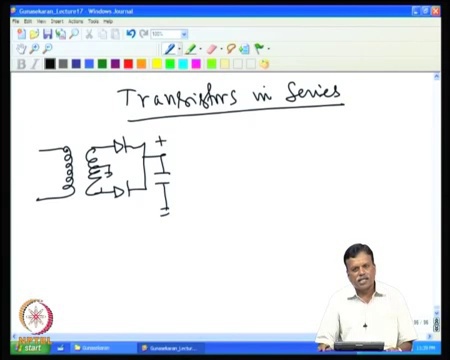 Gunasekaran_Lecture17 - Windows Journal
File Edit View Insert Actions Tools Help
100%
B I
Transistors in Series
+
NPTEL
start Gunasekaran Gunasekaran_Lectu...